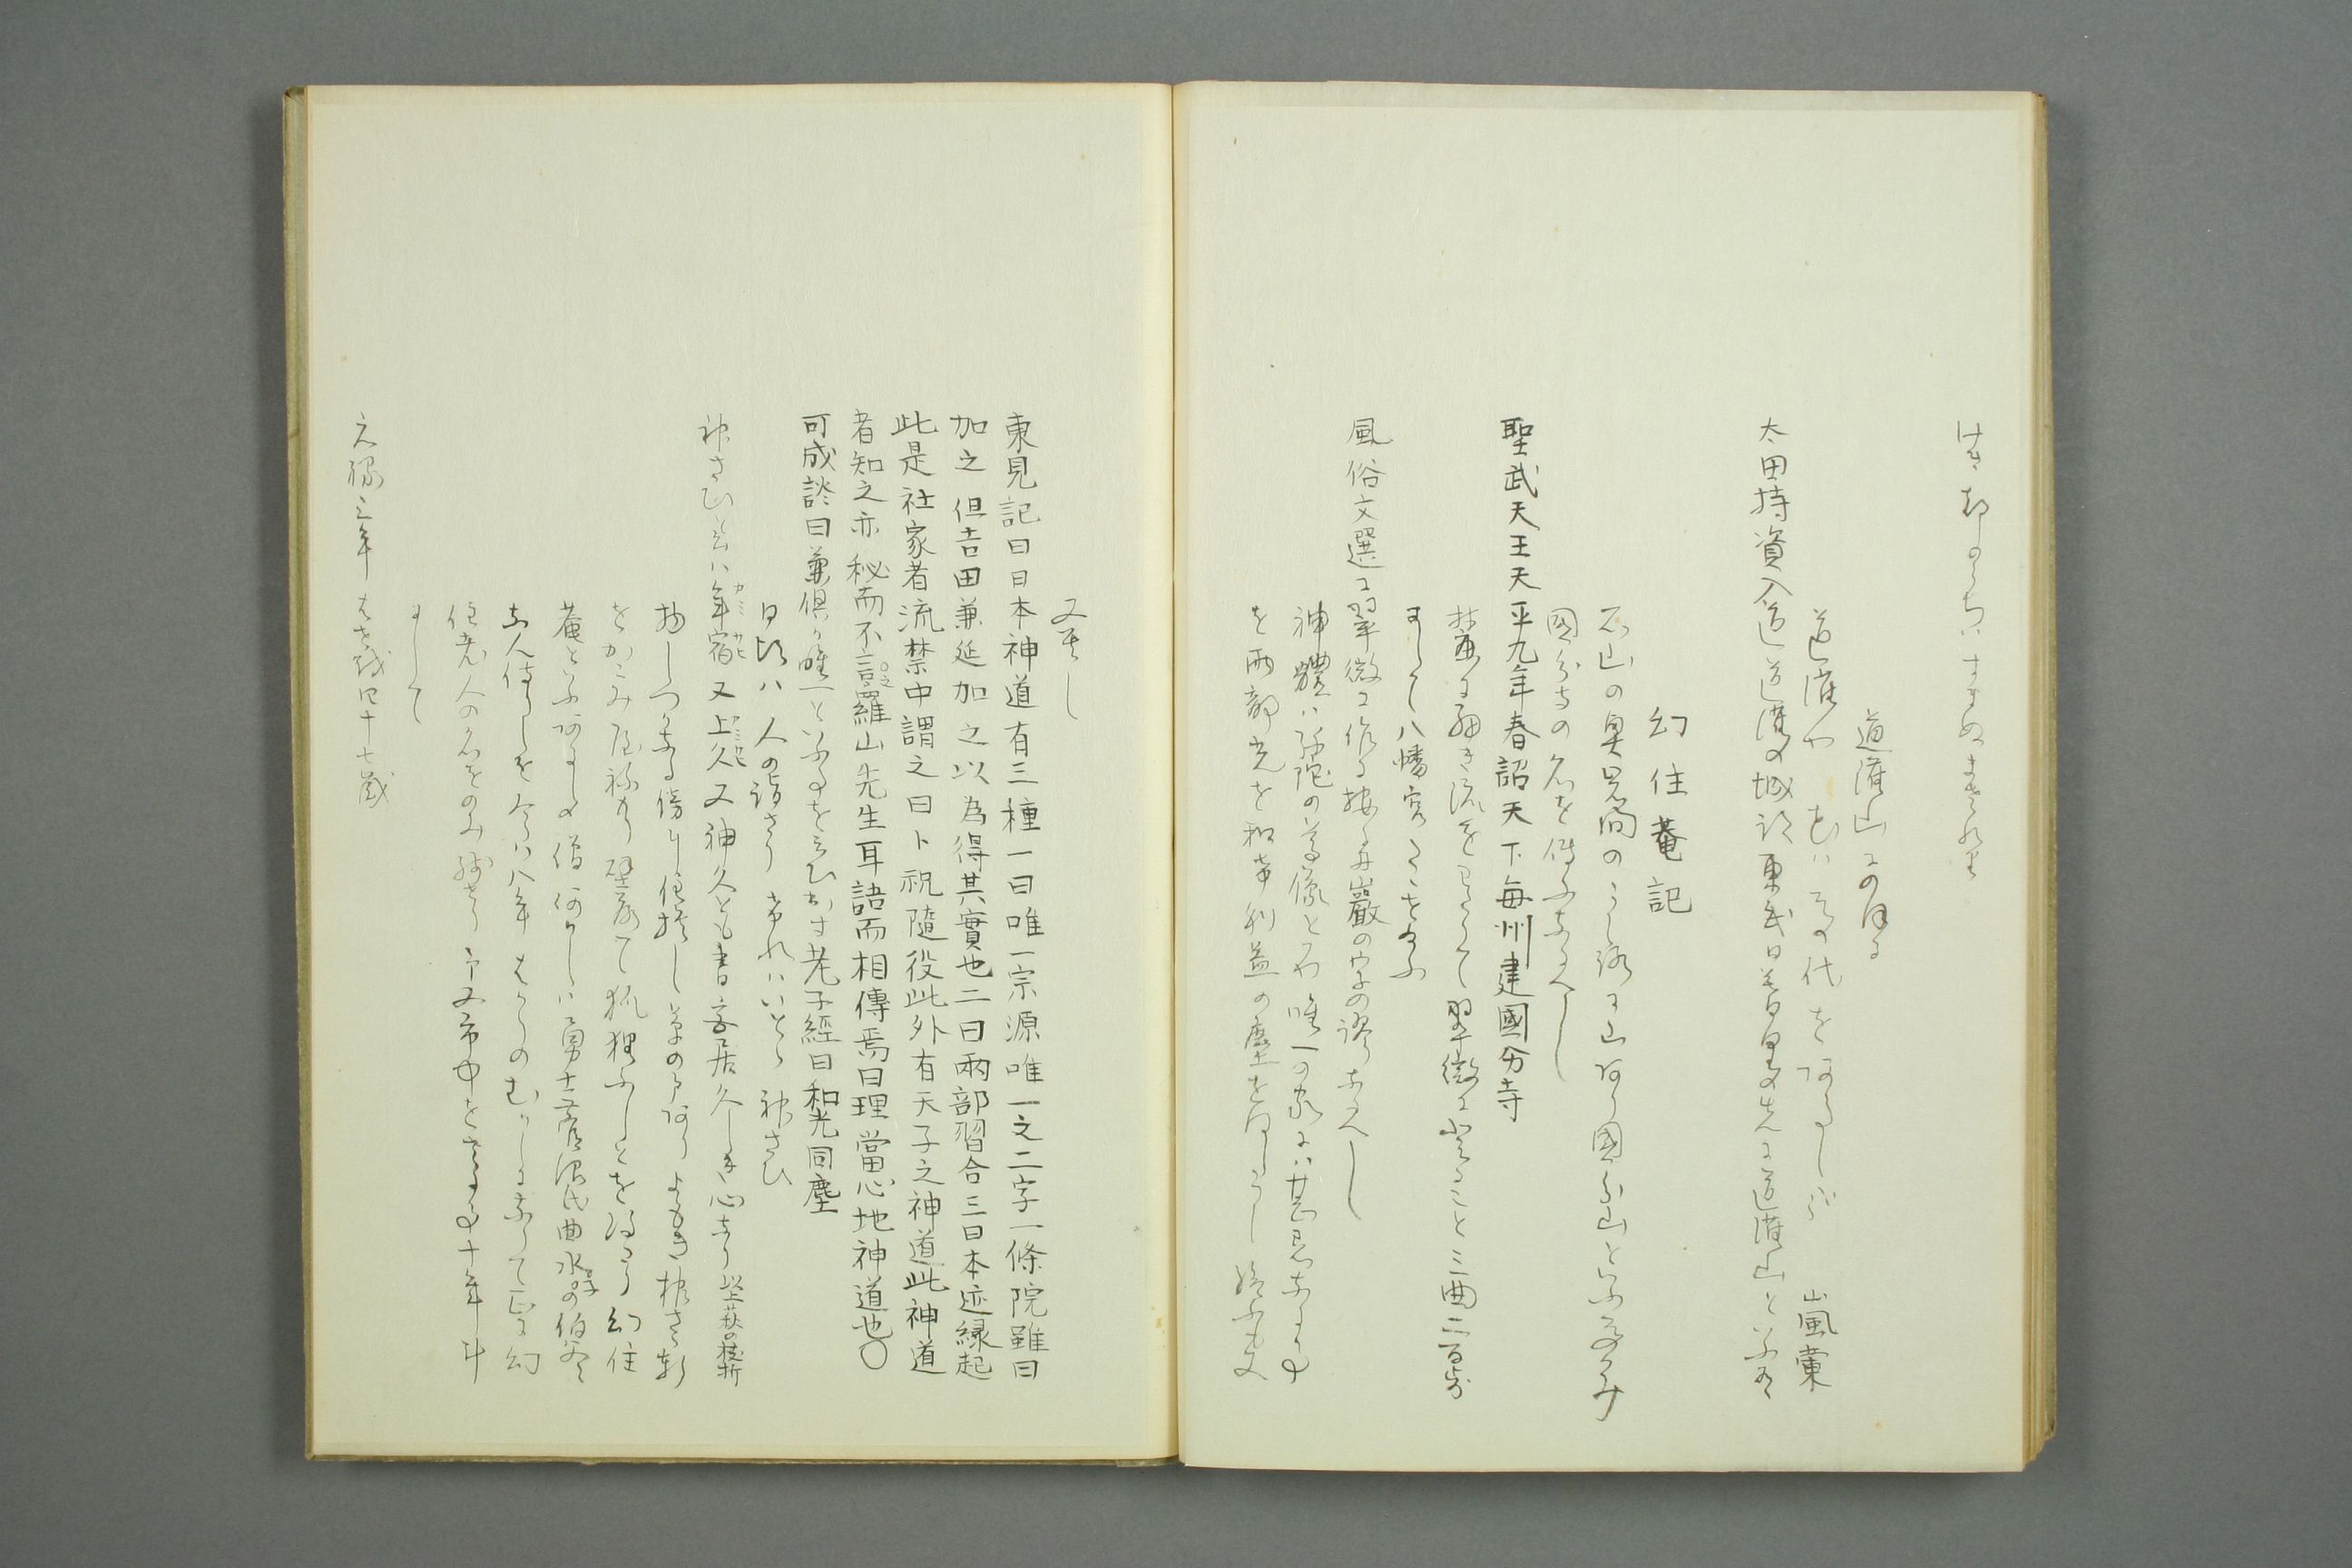 道灌山にのほる
道灌や花はその代をあらしかな 嵐蘭
太田持資入道道灌の城跡東武日暮里の先に道灌山といふ有
幻住菴記
石山の奥岩間のうしろに山あり國分山といふそのかみ
國分寺の名を傳ふなるへし
聖武天王天平九年春詔天下毎州建國分寺
麓に細き流をわたりて翠微に登ること三曲二百歩
にして八幡宮たゝせ給ふ
風俗文選に翠微に作る按
神體は弥陀の尊像とかや唯一の家には甚忌なる事
を両部光を和け利益の塵を同しうし給ふも又
又貴し
東見記曰日本神道有三種一曰唯一宗源唯一之二字一條院雖曰
加之但吉田兼延加之以為得其實也二曰兩部習合三曰本迹縁起
此是社家者流禁中謂之曰卜祝隨役此外有天子之神道此神道
者知之亦秘而不言之羅山先生耳語而相傳焉曰理當心地神道也〇
可成談曰兼倶か唯一といふ事を云ひ出す老子經曰和光同塵
日頃は人の詣さりけれはいとゝ神さひ
神さひ 年宿カミサヒ又上久カミサヒ又神久とも書 久しき心なり
物しつかなる傍に住捨し草の戸あり よもき根さゝ軒
をかこみ屋ねもり壁落て狐狸ふしとを得たり幻住
菴といふあるしの僧何かしは勇士菅沼氏曲水子の伯父
なん侍りしを今は八年はかりのむかしになりて正に幻
住老人の名をのみ残せり予又市中をさる事十年斗
にして
元禄三年はせを翁四十七歳